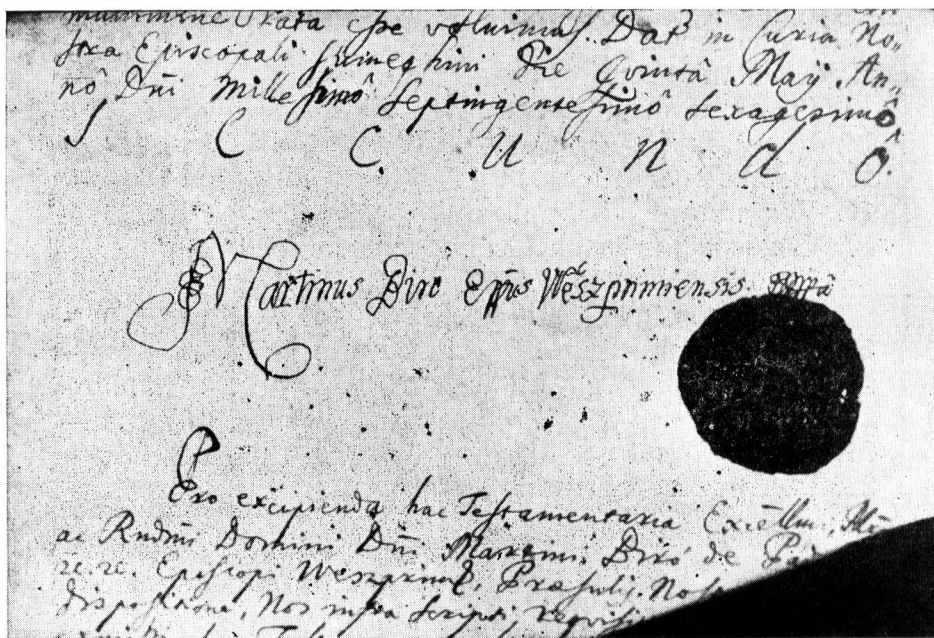 esse voluimus. Dat in Curia No„
stra Episcopali Sümeghini Die Quintâ Maÿ An„
nô Dni Millesimô Septingentesimô Sexagesimô
S E C U N d Ô.
Martinus Biro Eppus Weszprimiensis
Pro excipienda hac Testamentaria Excellmi,
ac Rndmi Domini Dni Martini Biró de
Episcopi Præsulis
dispositione, Nos infra scripti,